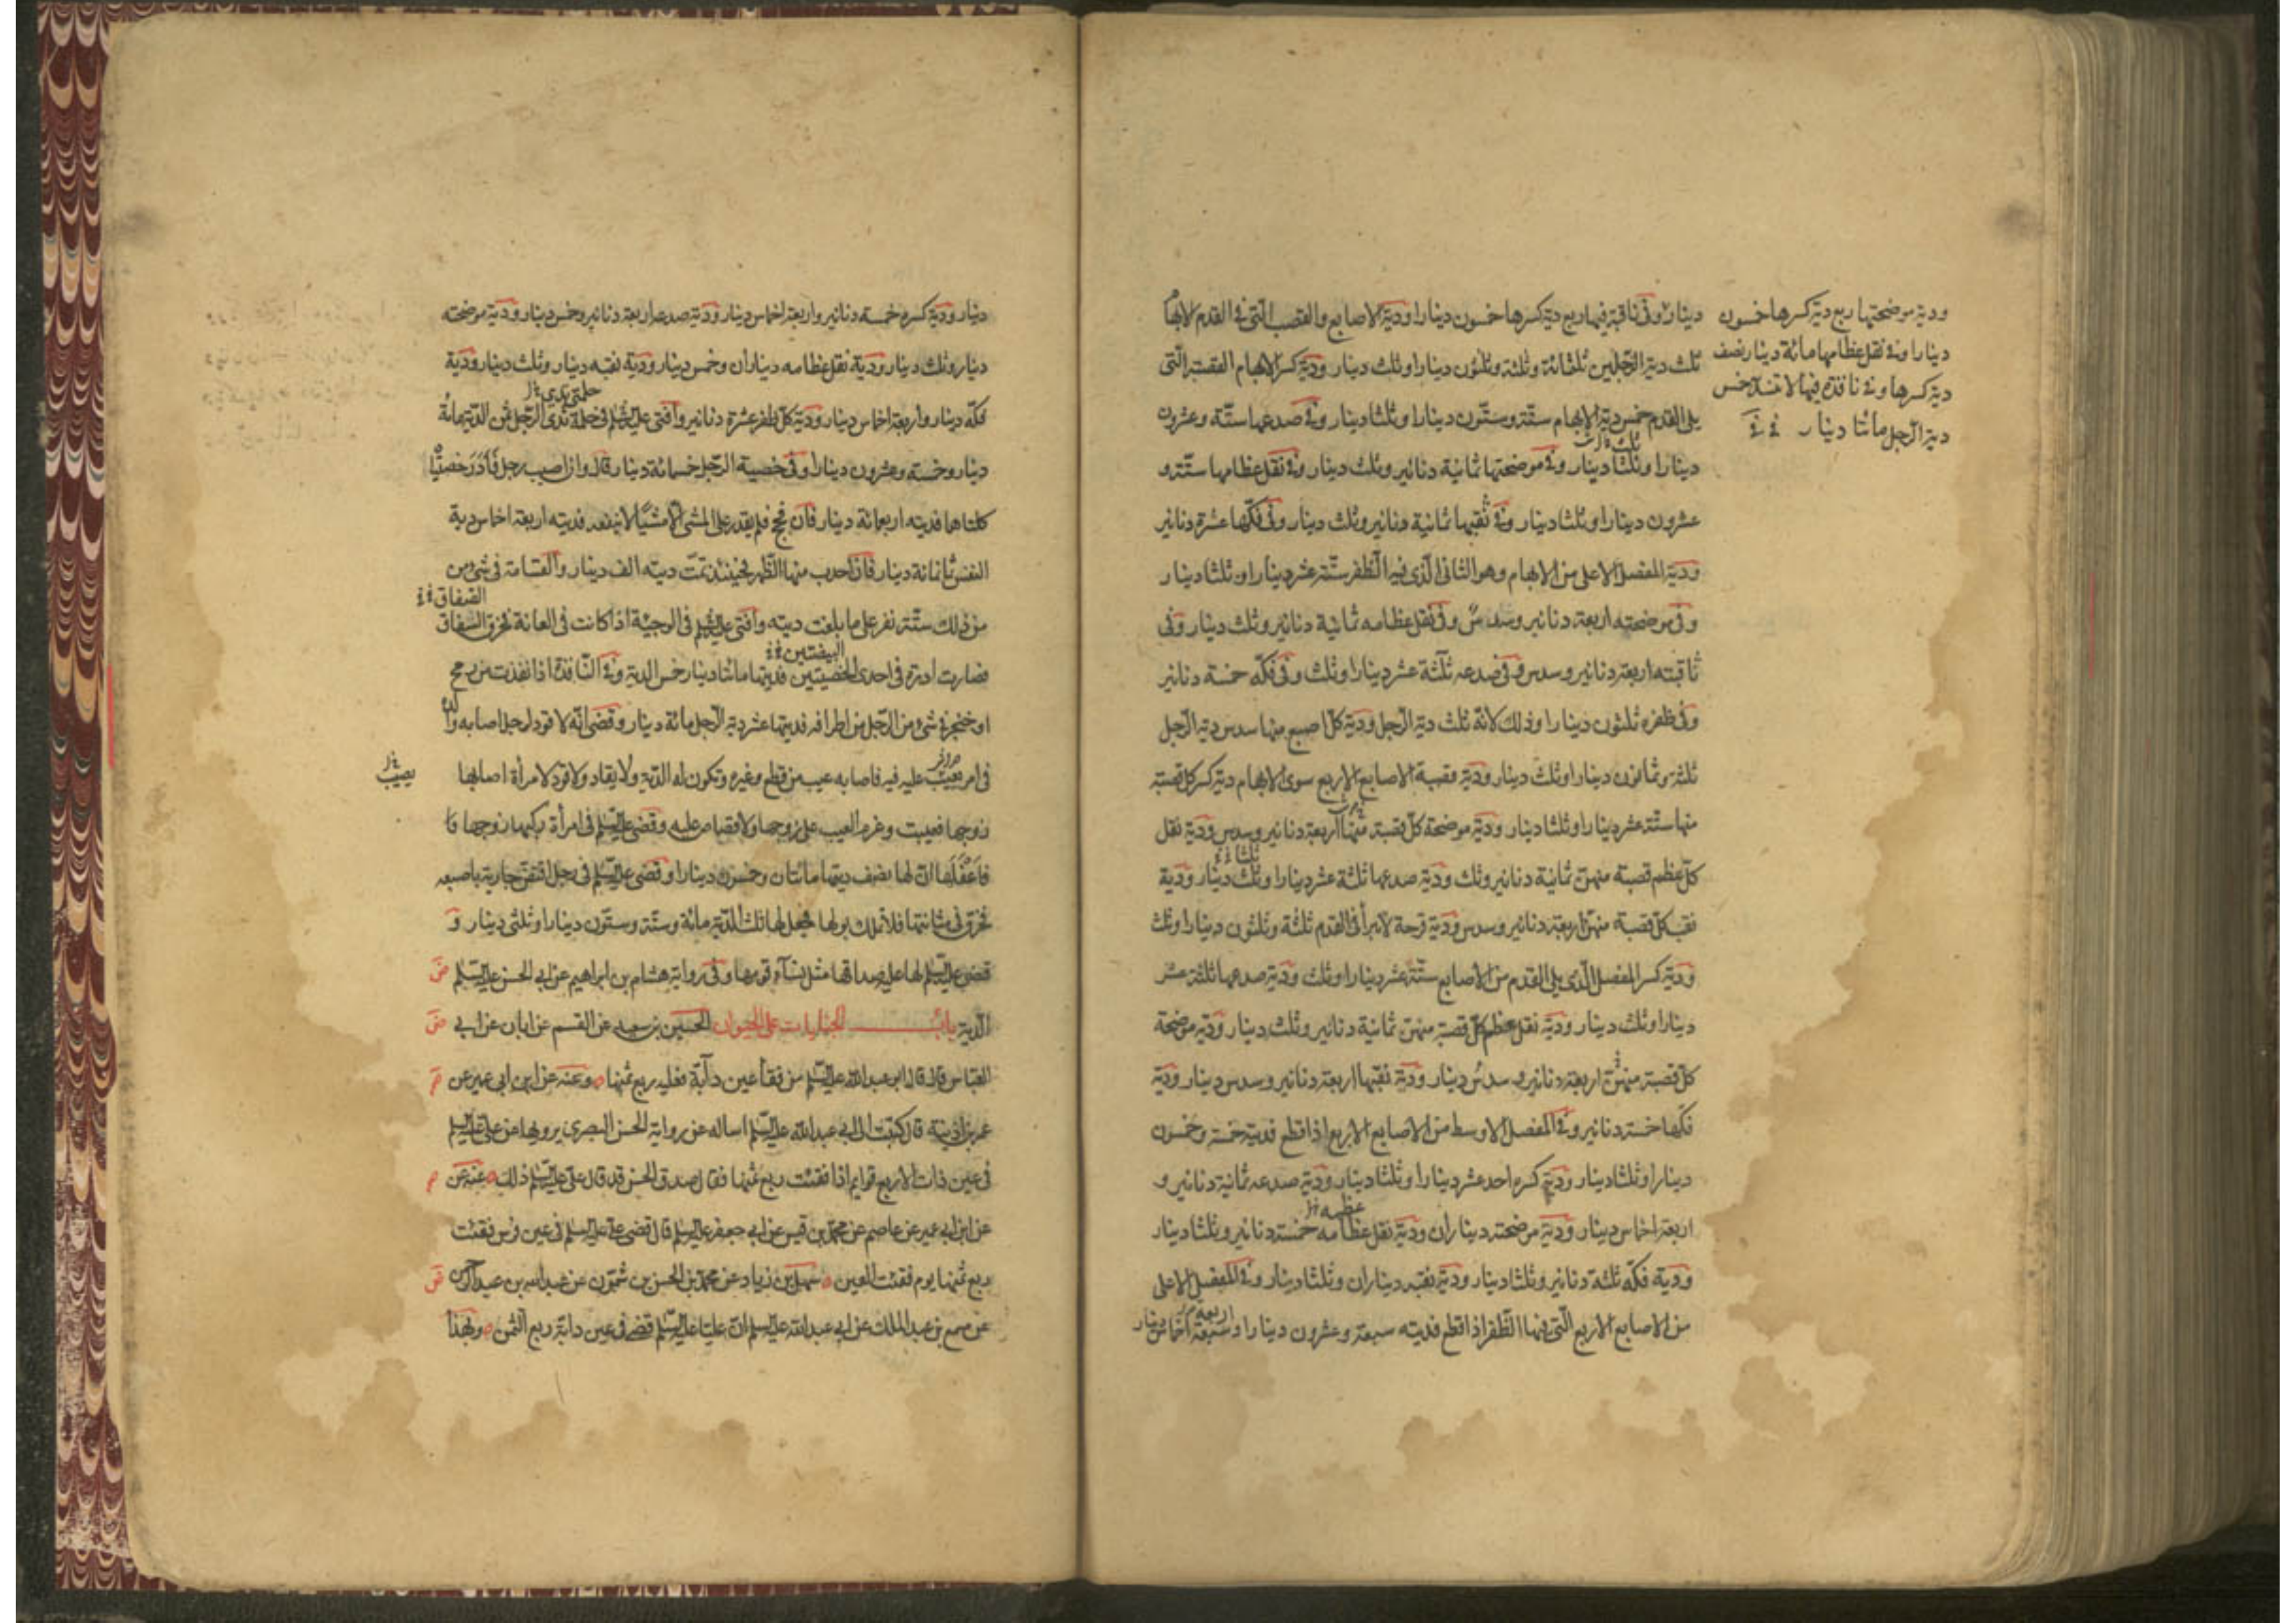 دينارا وفي ناقبة فيها ربع دية كسرها خمسون دينارا ودية الاصابع والقصب التي في القدم لابهام
ثلث دية الرجلين ثلثمائة وثلثة وثلثون دينارا وثلث دينار ودية كسر الابهام القصبة التي
يلي القدم خمس دية الابهام ستة وستون دينارا وثلثا دينار وفي صدعها ستة وعشرون
دينارا وثلثا دينار وفي موضحتها ثمانية دنانير وثلث دينار وفي نقل عظامها ستة و
عشرون دينارا وثلثا دينار وفي نقبها ثمانية دنانير وثلث دينار وفي فكها عشرة دنانير
ودية المفصل الاعلى من الابهام وهو الثاني الذي فيه الظفر ستة عشر دينارا وثلثا دينار
وفي موضحته اربعة دنانير وسدس وفي نقل عظامه ثمانية دنانير وثلث دينار وفي
ثاقبته اربعة دنانير وسدس وفي صدعه ثلثة عشر دينارا وثلث وفي فكه خمسة دنانير
وفي ظفره ثلثون دينارا وذلك لانه ثلث دية الرجل ودية كل اصبع منها سدس دية الرجل
ثلثة وثمانون دينارا وثلث دينار ودية قصبة الاصابع الاربع سوى الابهام دية كسر كل قصبة
منها ستة عشر دينارا وثلثا دينار ودية موضحة كل قصبة منها اربعة دنانير وسدس ودية نقل
كل عظم قصبة منهن ثمانية دنانير وثلث ودية صدعها ثلثة عشر دينارا وثلث دينار ودية
نقب كل قصبة منهن اربعة دنانير وسدس ودية قرحة لا تبرأ في القدم ثلثة وثلثون دينارا وثلث
ودية كسر المفصل الذي يلي القدم من الاصابع ستة عشر دينارا وثلث ودية صدعها ثلثة عشر
دينارا وثلث دينار ودية نقل عظم كل قصبة منهن ثمانية دنانير وثلث دينار ودية موضحة
كل قصبة منهن اربعة دنانير وسدس دينار ودية نقبها اربعة دنانير وسدس دينار ودية
فكها خمسة دنانير وفي المفصل الاوسط من الاصابع الاربع اذا قطع فديته خمسة وخمسون
دينارا وثلثا دينار ودية كسره احد عشر دينارا وثلثا دينار ودية صدعه ثمانية دنانير و
اربعة اخماس دينار ودية موضحته ديناران ودية نقل عظامه خمسة دنانير وثلثا دينار
عظمه
ودية فكه ثلثة دنانير وثلثا دينار ودية نقبه ديناران وثلثا دينار وفي المفصل الاعلى
من الاصابع الاربع التي فيها الظفر اذا قطع فديته سبعة وعشرون دينارا و اخماس دينار
اربعة
ودية موضحتها ربع دية كسرها خمسون
دينارا وفي نقل عظامها مائة دينار نصف
دية كسرها وفي نافذة فيها لا تنسد خمس
دية الرجل مائتا دينار
دينار ودية كسره خمسة دنانير واربعة اخماس دينار ودية صدعه اربعة دنانير وخمس دينار ودية موضحته
دينار وثلث دينار ودية نقل عظامه ديناران وخمس دينار ودية نقبه دينار وثلث دينار ودية
فكه دينار واربعة اخماس دينار ودية كل ظفر عشرة دنانير وافتى عليه السلم في حلمة ثدي الرجل ثمن الدية مائة
دينار وخمسة وعشرون دينارا وفي خصية الرجل خمسمائة دينار قال وان اصيب رجل فأدر خصيتاه
كلتاهما فديته اربعمائة دينار فان فحج فلم يقدر على المشي الا مشيا لا ينفعه فديته اربعة اخماس دية
النفس ثمانمائة دينار فان احدب منها الظهر فحينئذ تمت ديته الف دينار والقسامة في شيء من
الصفاق
من ذلك ستة نفر على ما بلغت ديته وافتى عليه السلم في الوجيئة اذا كانت في العانة فخرق السفاق
البيضتين
فصارت ادرة في احدى الخصيتين فديتها مائتا دينار خمس الدية وفي النافذة اذا نفذت من رمح
او خنجر في شيء من الرجل من اطرافه فديتها عشر دية الرجل مائة دينار وقضى انه لا قود لرجل اصابه والده
في امر يعيب عليه فيه فاصابه عيب من قطع وغيره وتكون له الدية ولا يقاد ولا قود لامرأة اصابها
يصيب
زوجها فعيبت وغرم العيب على زوجها ولا قصاص عليه وقضى عليه السلم في امرأة ركبها زوجها
فاعفلها ان لها نصف ديتها مائتان وخمسون دينارا وقضى عليه السلم في رجل افتض جارية باصبعه
فخرق مثانتها فلا تملك بولها فجعل لها ثلث الدية مائة وستة وستون دينارا وثلثي دينار و
قضى عليه السلم لها عليه صداقها مثل نساء قومها وفي رواية هشام بن ابراهيم عن ابي الحسن عليه السلم
الدية باب الجنايات على الحيوان الحسين بن سعيد عن القسم عن ابان عن ابي
العباس قال قال ابو عبد الله عليه السلم من فقأ عين دابة فعليه ربع ثمنها وعنه عن ابن ابي عمير عن
عمر بن اذينة قال كتبت الى ابي عبد الله عليه السلم اساله عن رواية الحسن البصري يرويها عن علي عليه السلم
في عين ذات الاربع قوايم اذا فقئت ربع ثمنها فقال صدق الحسن قد قال علي عليه السلم ذلك عنه عن
عن ابن ابي عمير عن عاصم عن محمد بن قيس عن ابي جعفر عليه السلم قال قضى علي عليه السلم في عين فرس فقئت
ربع ثمنها يوم فقئت العين سهل بن زياد عن محمد بن الحسن بن شمون عن عبد الله بن عبد الرحمن
عن مسمع بن عبد الملك عن ابي عبد الله عليه السلم ان عليا عليه السلم قضى في عين دابة ربع الثمن وبهذا